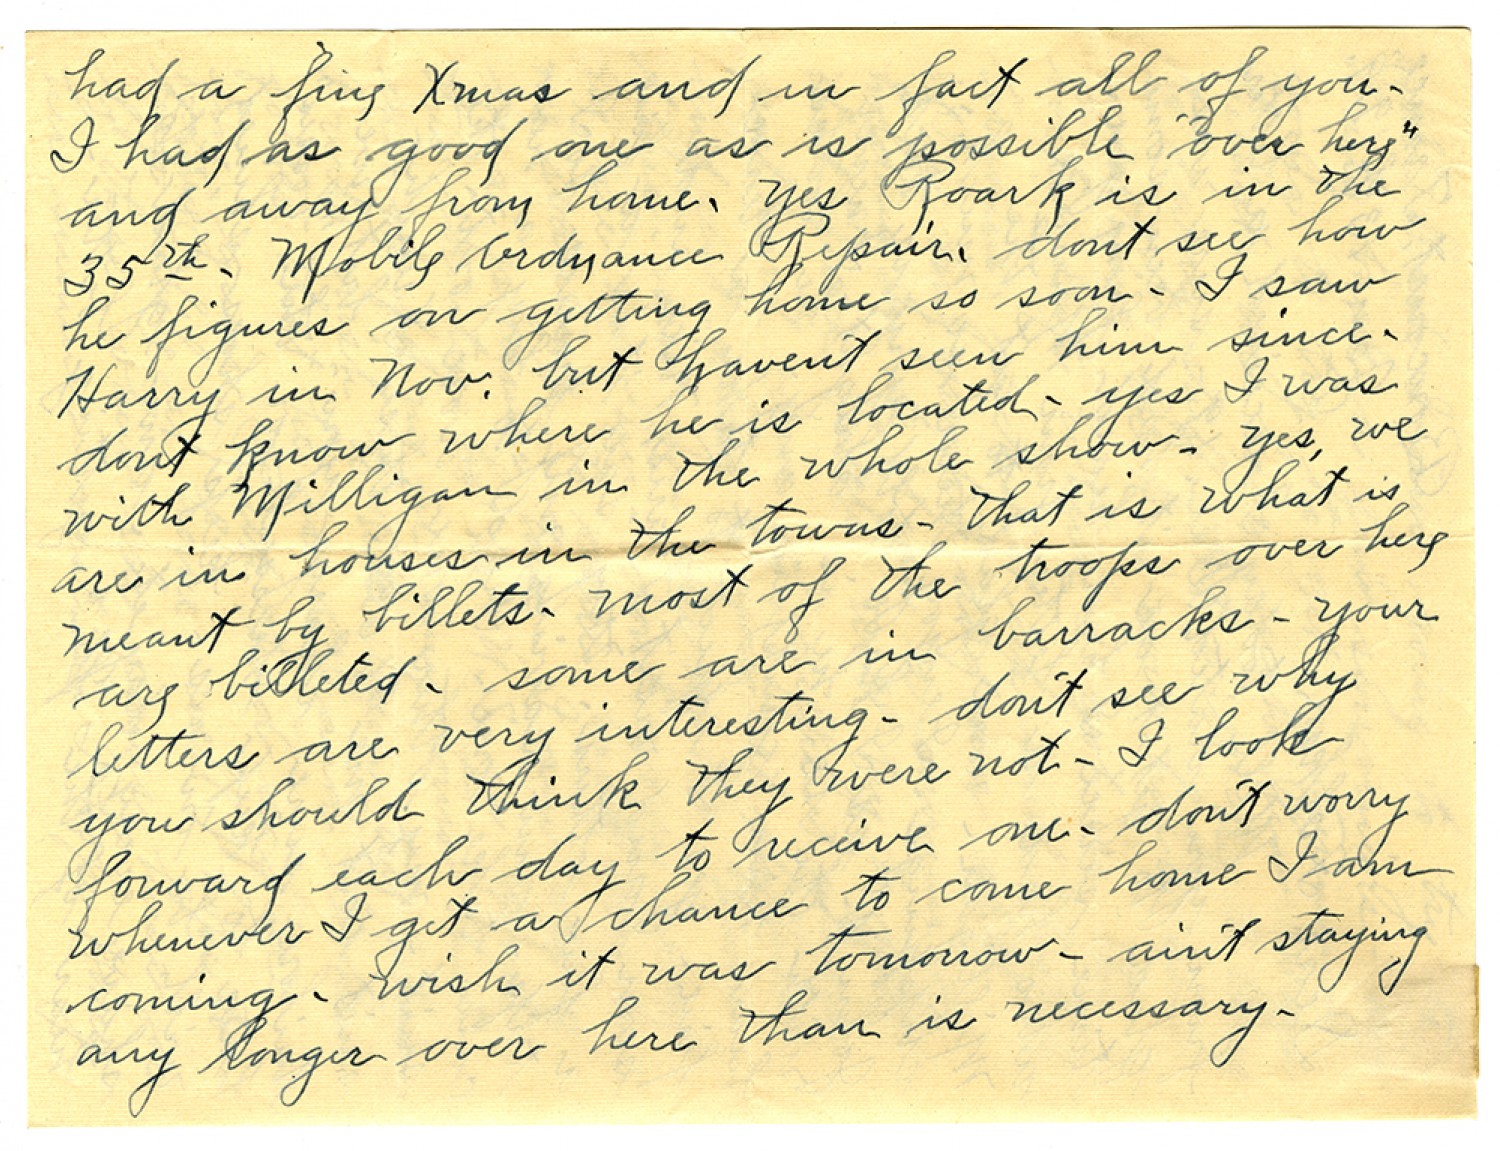 had a fine Xmas and in fact all of you-
I had as good one as is possible "over here"
and away from home. yes Roark is in the
35th. Mobile Ordnance Repair. dont see how
he figures on getting home so soon- I saw
Harry in Nov. but haven't seen him since.
dont know where he is located- yes I was
with Milligan in the whole show- yes, we
are in houses in the towns- that is what is
meant by billets- most of the troops over here
are billeted- some are in barracks- your
letters are very interesting- don't see why
you should think they were not- I look
forward each day to receive one- don't worry
whenever I get a chance to come home I am
coming- wish it was tomorrow- ain't staying
any longer over here than is necessary-